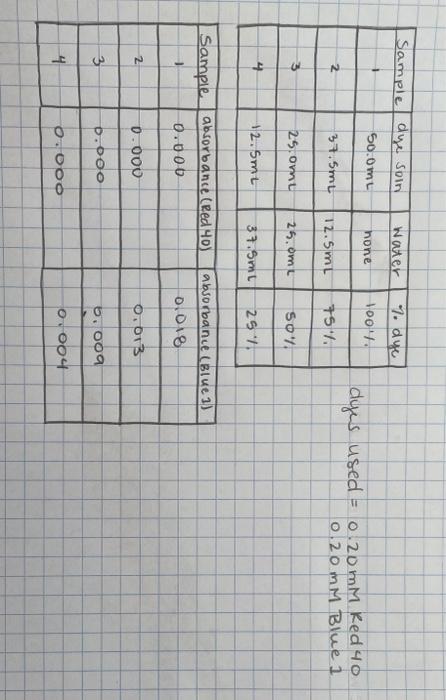 Sample dye soln Water % dye
1 50.0mL none 100%
2 37.5mL 12.5mL 75%
3 25.0mL 25.0mL 50%
4 12.5mL 37.5mL 25%
dyes used = 0.20mM Red 40
0.20mM Blue 1
Sample absorbance (Red 40) absorbance (Blue 1)
1 0.000 0.018
2 0.000 0.013
3 0.000 0.009
4 0.000 0.004